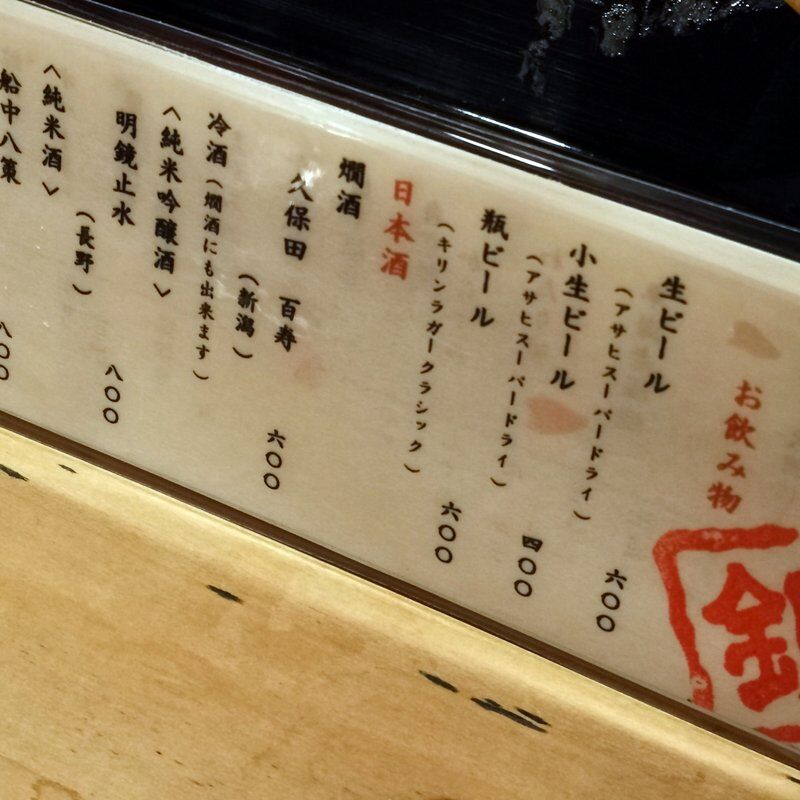 お飲み物
生ビール
（アサヒスーパードライ） 六〇〇
小生ビール
（アサヒスーパードライ） 四〇〇
瓶ビール
（キリンラガークラシック） 六〇〇
日本酒
燗酒
久保田 百寿
（新潟） 六〇〇
冷酒（燗酒にも出来ます）
〈純米吟醸酒〉
明鏡止水
（長野） 八〇〇
〈純米酒〉
船中八策
八〇〇